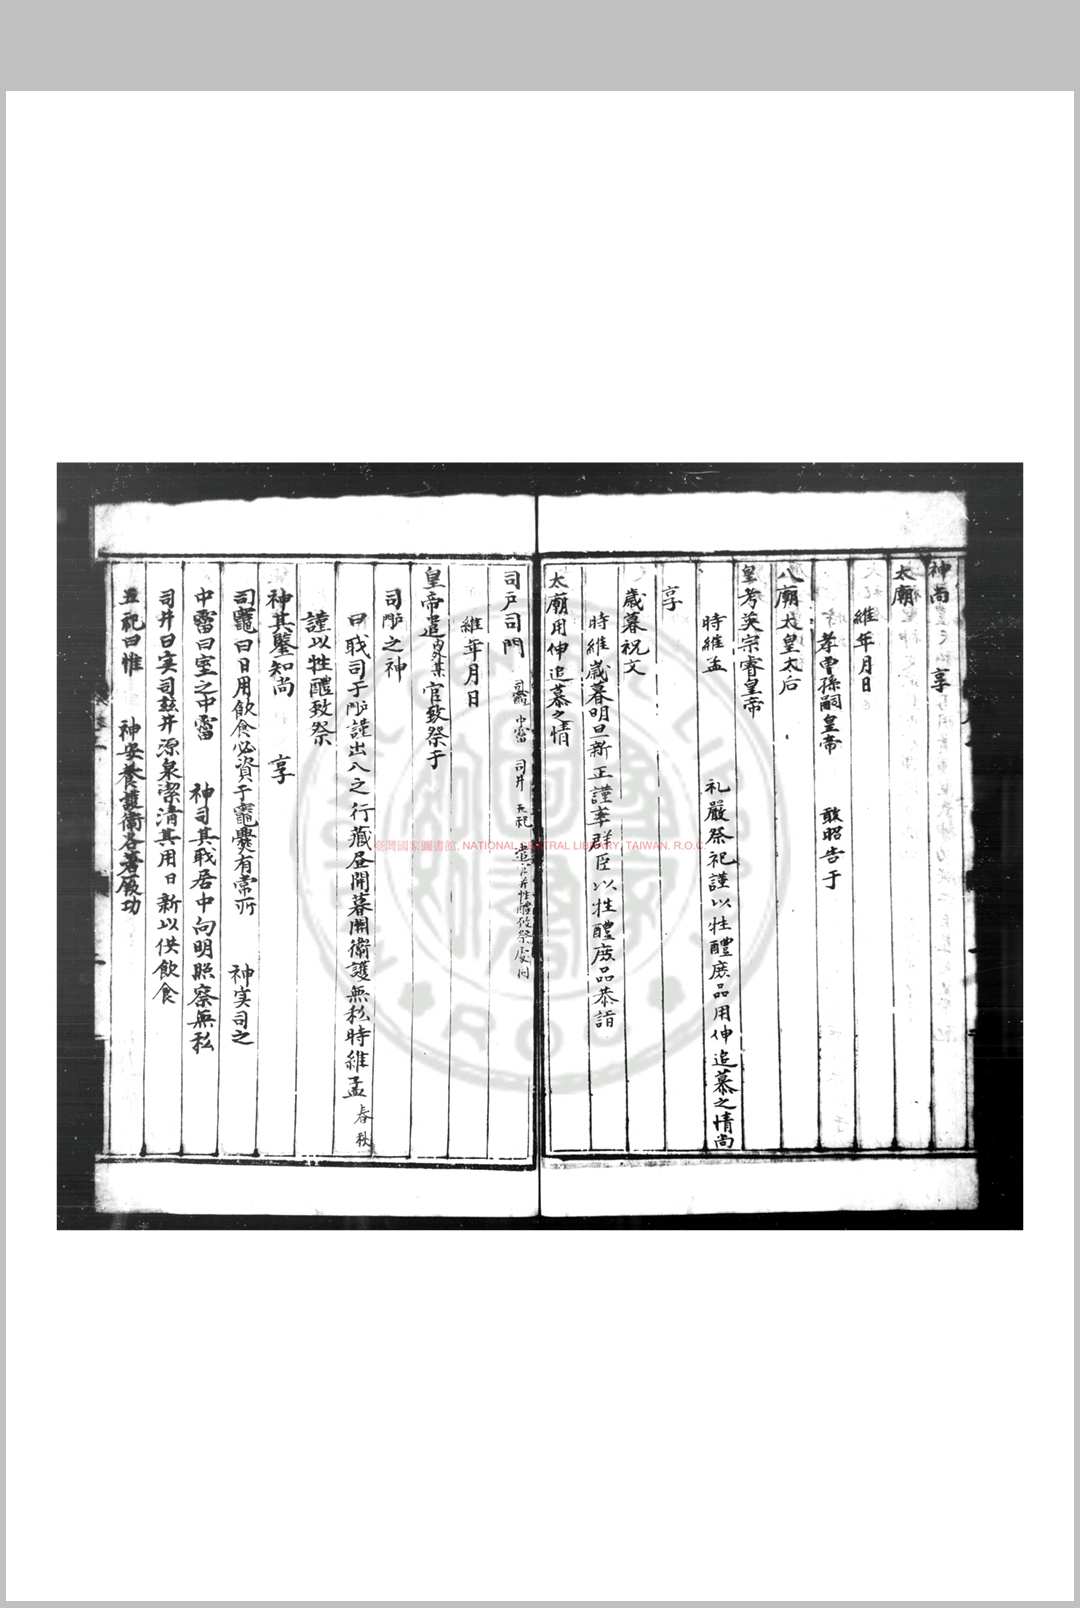 神尚　享
太廟
維年月日
孝曾孫嗣皇帝　敢昭告于
八廟太皇太后
皇考英宗睿皇帝
時維孟　礼嚴祭祀謹以牲醴庶品用伸追慕之情尚
享
歲暮祝文
時維歲暮明旦新正謹率群臣以牲醴庶品恭詣
太廟用伸追慕之情
司戶司門　司竈 中霤 司井 五祀
維年月日
皇帝遣内外某官致祭于
司戶之神
曰職司于戶謹出入之行藏昼開暮闔衛護無私時維孟春秋
謹以牲醴致祭
神其鑒知尚　享
司竈曰日用飲食必資于竈爨有常所　神実司之
中霤曰室之中霤　神司其職居中向明照察無私
司井曰実司玆井源泉潔清其用日新以供飲食
五祀曰惟　神安養護衛各著厥功
臺灣國家圖書館, NATIONAL CENTRAL LIBRARY, TAIWAN. R.O.C.